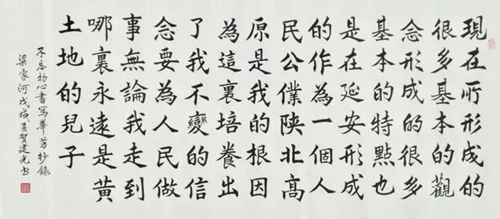 現在所形成的
很多基本的觀
念形成的很多
基本的特點也
是在延安形成
的作為一個人
民公僕陝北高
原是我的根因
為這裏培養出
了我不變的信
念要為人民做
事無論我走到
哪裏永遠是黃
土地的兒子
不忘初心書寫華芳抄錄
梁家河戊戌夏賀建光書